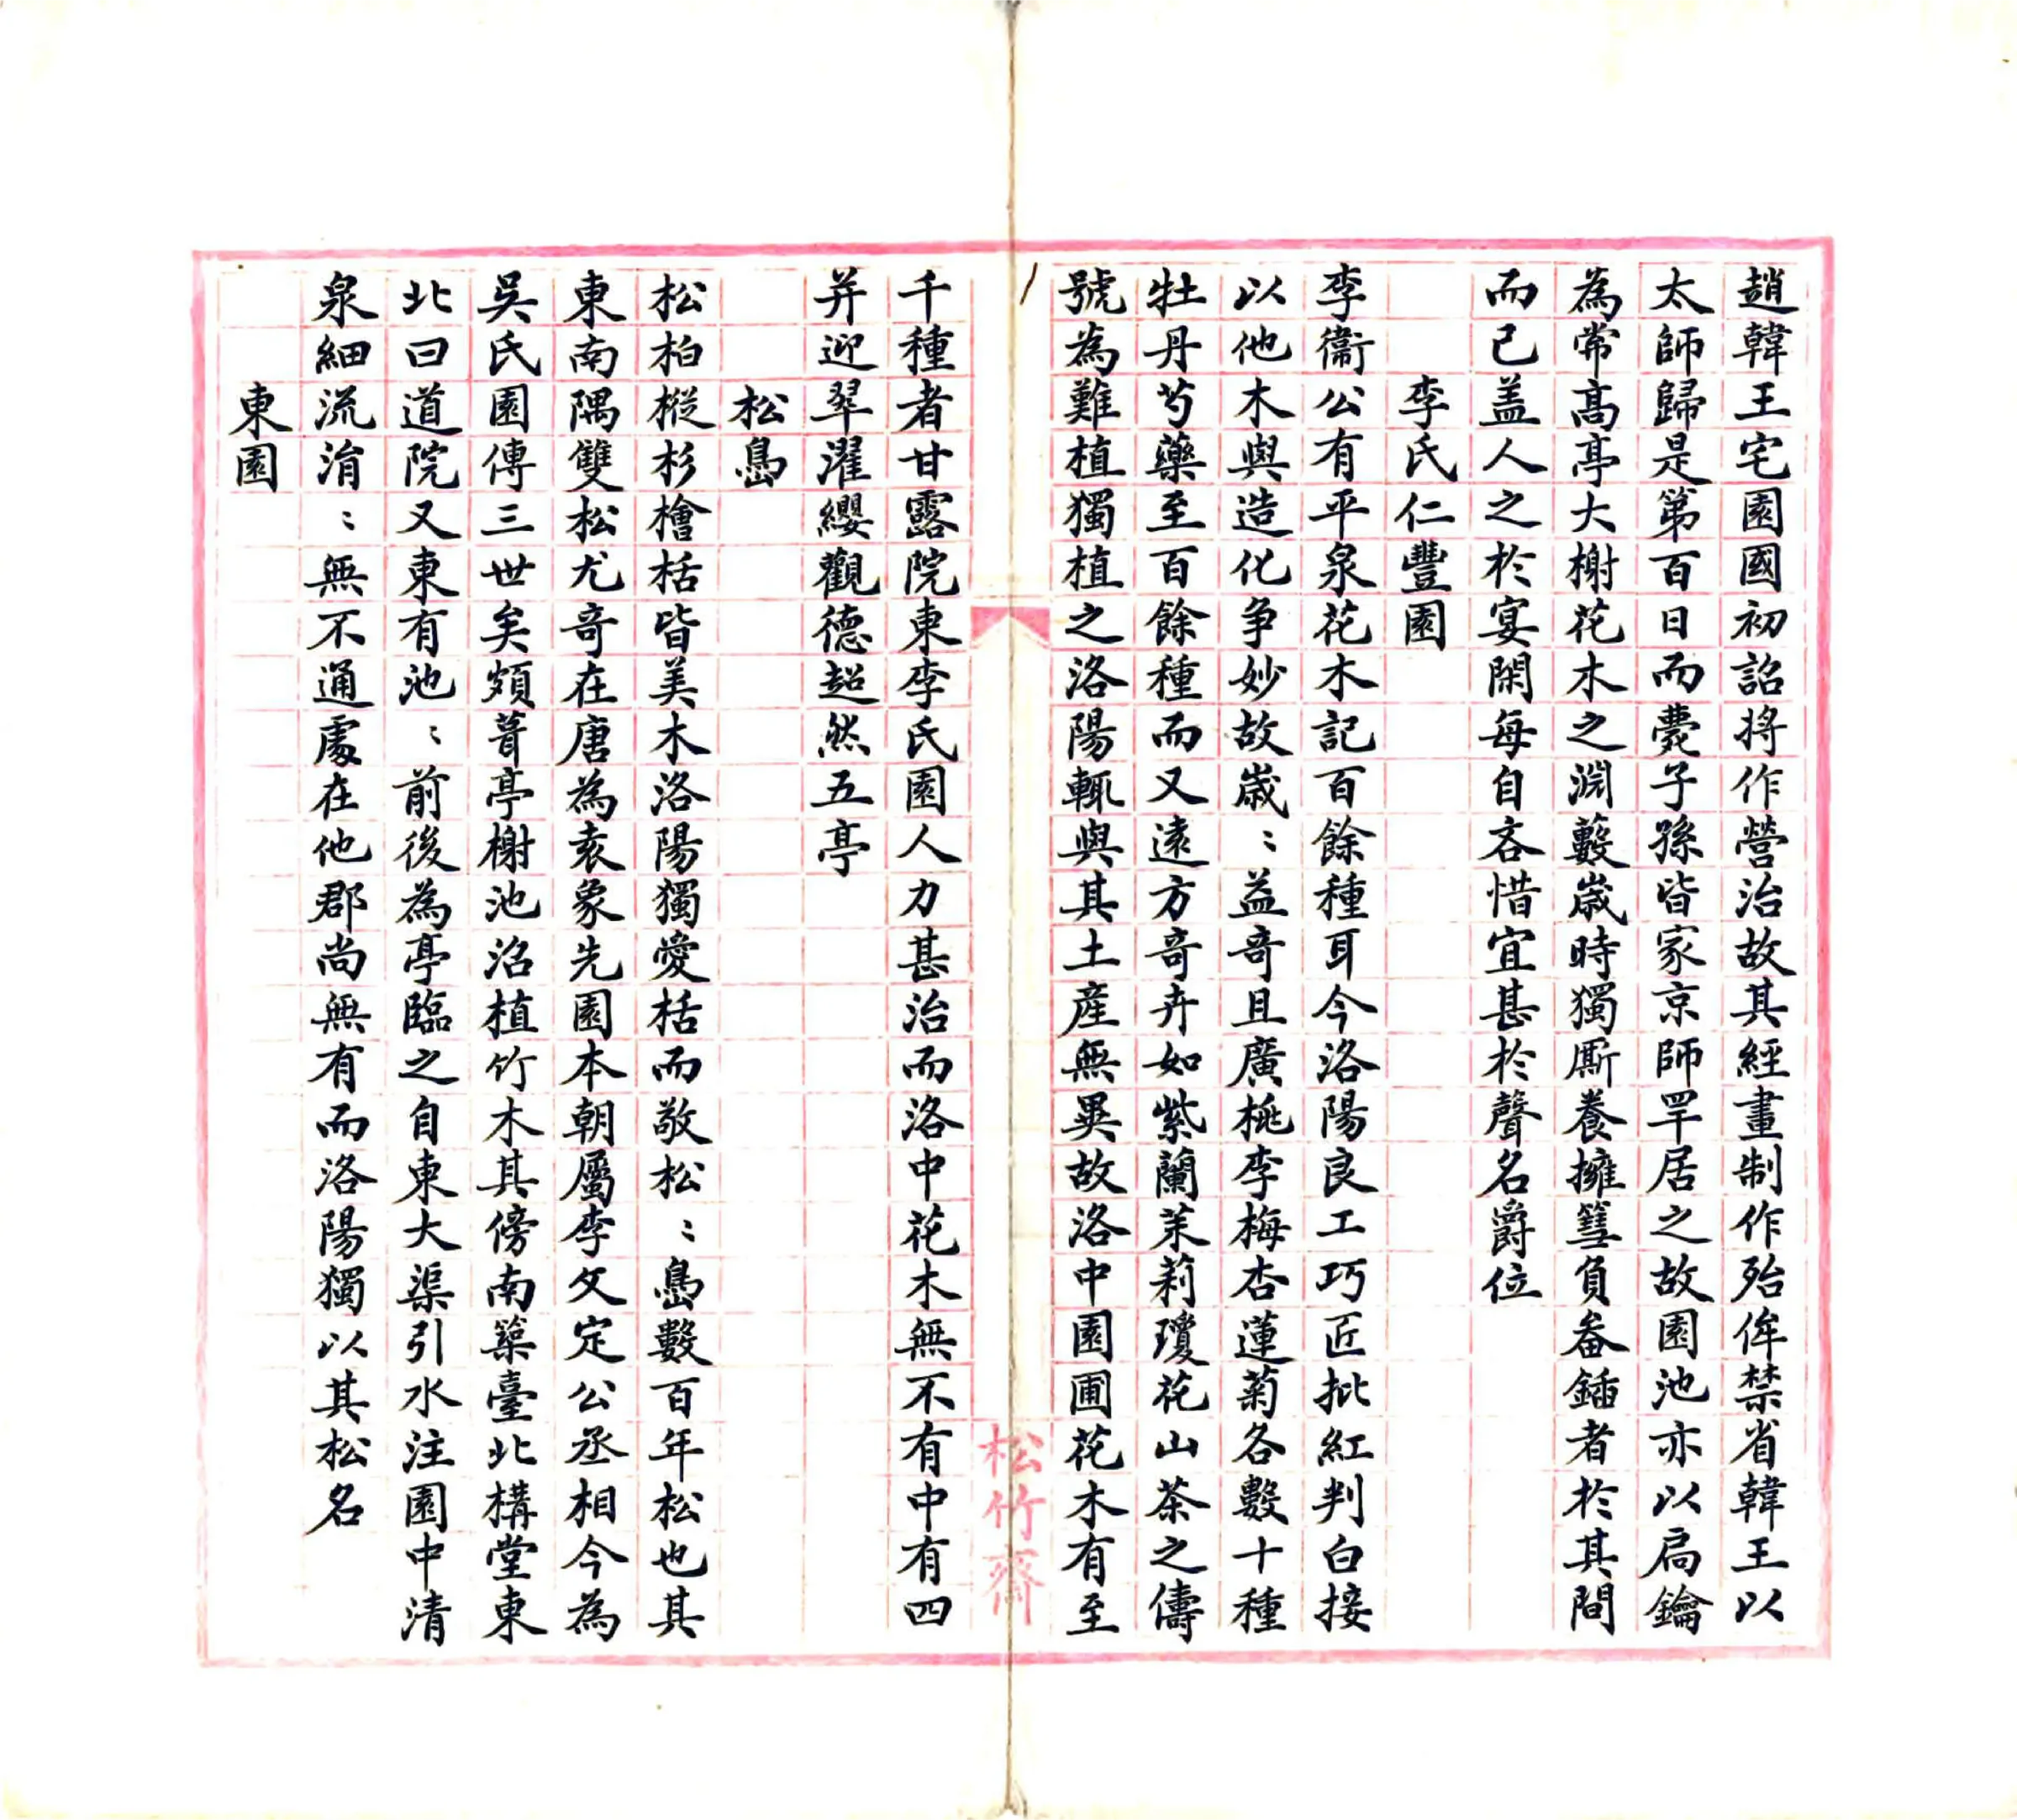 趙韓王宅園國初詔將作營治故其經畫制作殆侔禁省韓王以
太師歸是第百日而薨子孫皆家京師罕居之故園池亦以扃鑰
為常高亭大榭花木之淵藪歲時獨厮養擁篲負畚鍤者於其間
而已盖人之於宴閑每自吝惜宜甚於聲名爵位
李氏仁豐園
李衞公有平泉花木記百餘種耳今洛陽良工巧匠批紅判白接
以他木與造化争妙故歲〻益奇且廣桃李梅杏蓮菊各數十種
牡丹芍藥至百餘種而又遠方奇卉如紫蘭茉莉瓊花山茶之儔
號為難植獨植之洛陽輒與其土産無異故洛中園圃花木有至
千種者甘露院東李氏園人力甚治而洛中花木無不有中有四
并迎翠濯纓觀德超然五亭
松島
松柏樅杉檜栝皆美木洛陽獨愛栝而敬松〻島數百年松也其
東南隅雙松尤奇在唐為袁象先園本朝屬李文定公丞相今為
吳氏園傳三世矣頗葺亭榭池沼植竹木其傍南築臺北構堂東
北曰道院又東有池〻前後為亭臨之自東大渠引水注園中清
泉細流涓〻無不通處在他郡尚無有而洛陽獨以其松名
東園
松竹齋